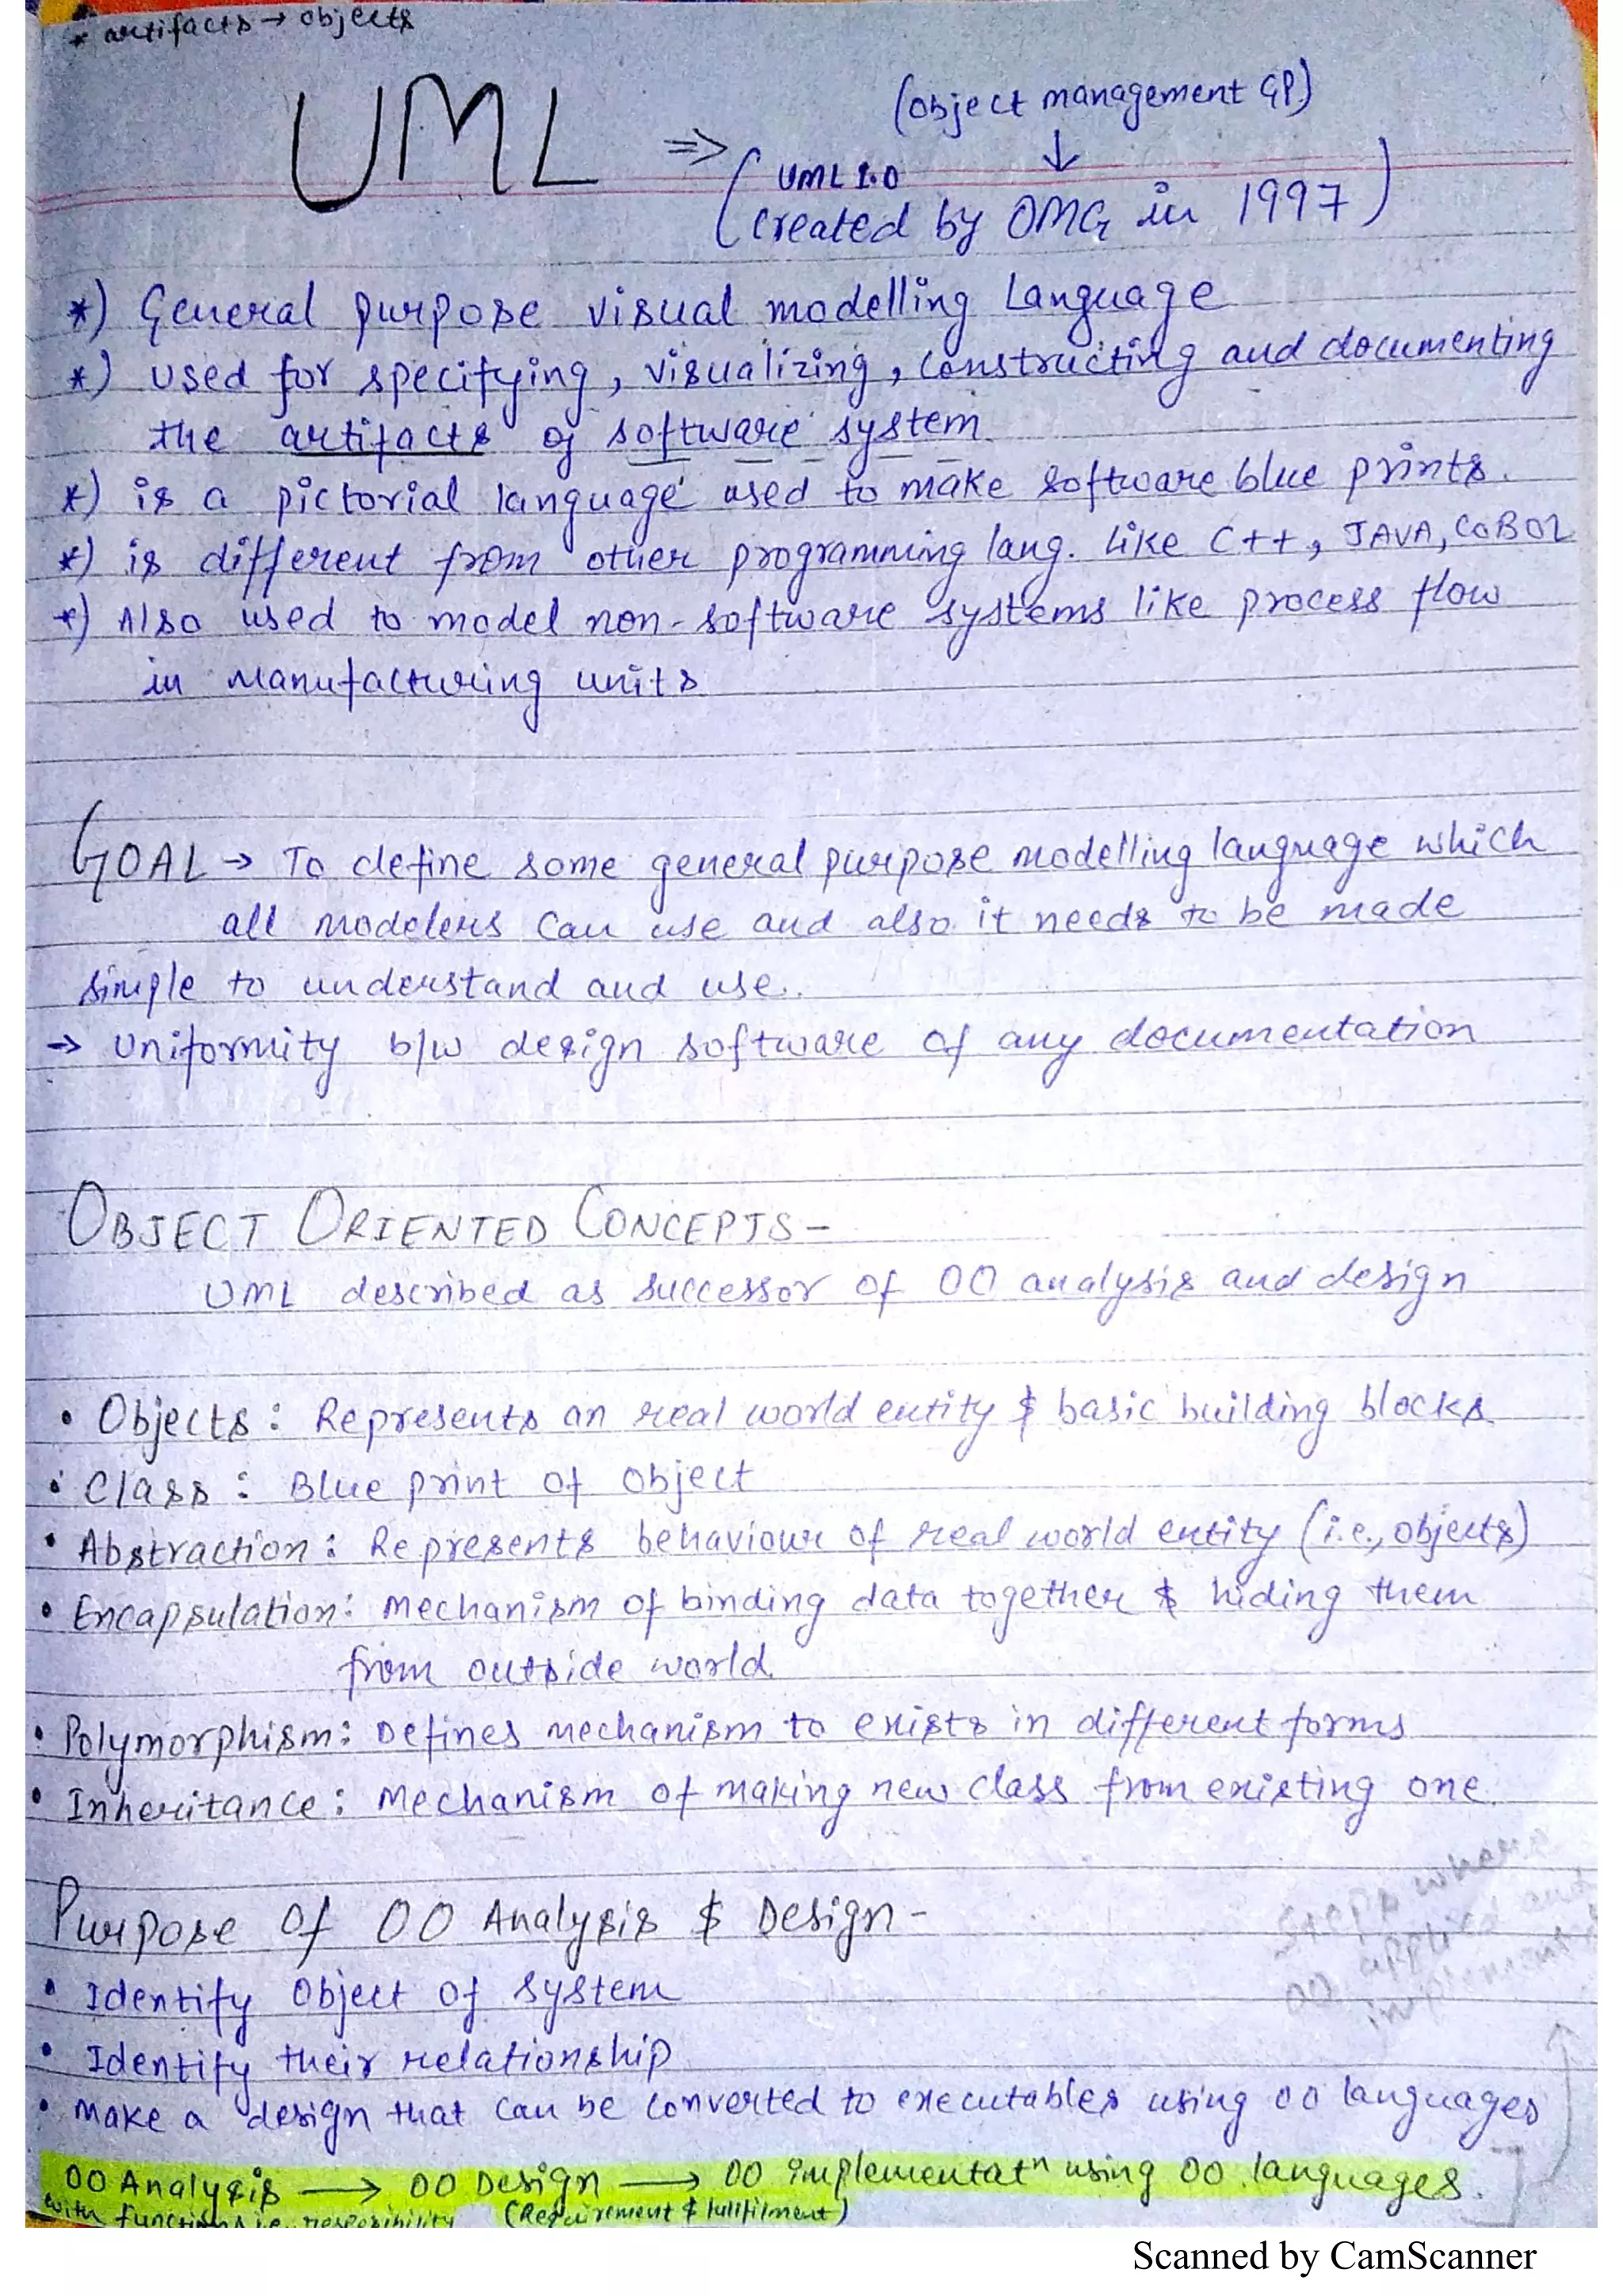 * artifacts → objects
UML ⇒ (object management GP)
↓
( UML 1.0
Created by OMG in 1997 )
*) General purpose visual modelling Language
*) Used for specifying, visualizing, constructing and documenting
the artifacts of software system
*) is a pictorial language used to make software blue prints.
*) is different from other programming lang. like C++, JAVA, COBOL
*) Also used to model non-software systems like process flow
in manufacturing units
GOAL → To define some general purpose modelling language which
all modelers can use and also it needs to be made
simple to understand and use.
→ Uniformity b/w design software of any documentation
OBJECT ORIENTED CONCEPTS -
UML described as successor of OO analysis and design
• Objects : Represents an real world entity & basic building blocks
• Class : Blue print of object
• Abstraction : Represents behaviour of real world entity (i.e., objects)
• Encapsulation : Mechanism of binding data together & hiding them
from outside world.
• Polymorphism : Defines mechanism to exists in different forms
• Inheritance : Mechanism of making new class from existing one.
Purpose of OO Analysis & Design -
steps where
OO applied and
• Identify object of system
• Identify their relationship
• Make a design that can be converted to executables using OO languages
OO Analysis → OO Design → OO Implementatn using OO languages.
with functions i.e. responsibility (Requirement & fullfilment)
Scanned by CamScanner